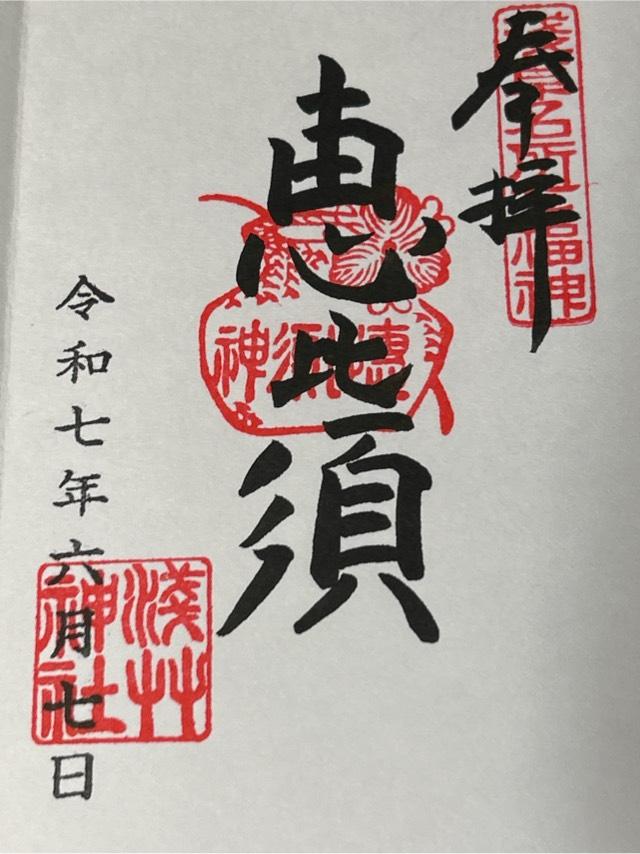 奉拝
淺草名所七福神
恵比須
恵比須神
令和七年六月七日
淺草神社